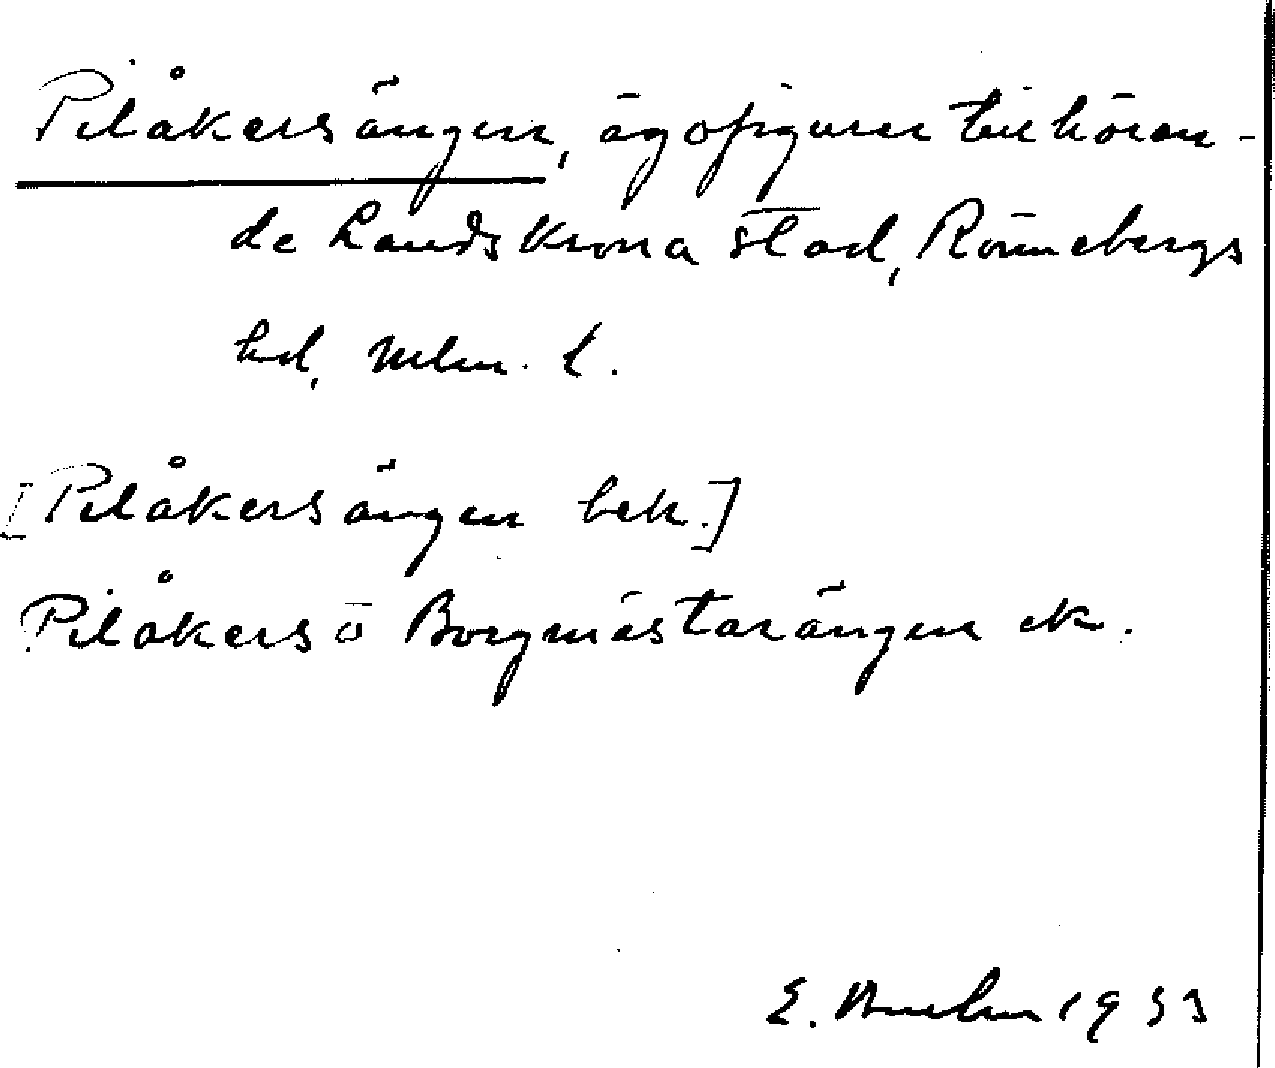 Pilåkersängen, ägofigurer tillhöran-
de Landskrona stad, Rönnebergs
hd, Mlm. l.
[Pilåkersängen bek.]
Pilåkers o Borgmästarängen ek.
E. 1933